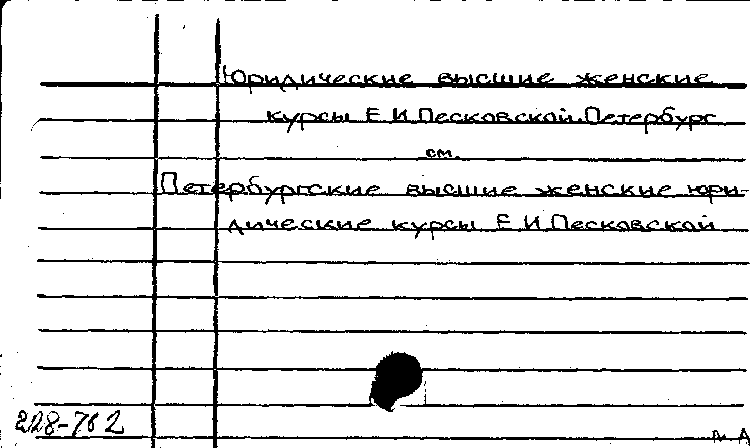 Юридические высшие женские
курсы Е.И.Песковской.Петербург
см.
Петербургские высшие женские юри-
дические курсы Е.И.Песковской
228-762